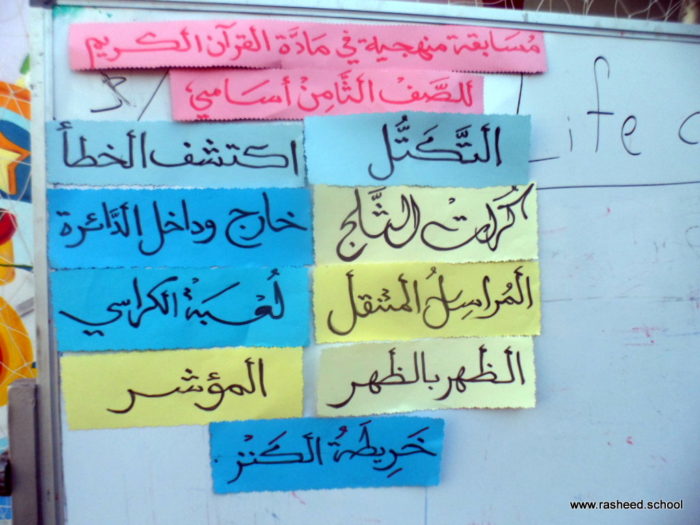 مُسَابقة منهجية في مَادَّة القرآن الكريم
للصَّف الثَّامِن أساسي
التَّكَتُّل
اكتشف الخطأ
كُرَات الثَّلج
خارج وداخل الدَّائرة
المُراسِلُ المتنقل
لُعْبَة الكراسي
الظهر بالظهر
المؤشر
خَرِيطَةُ الكَنْز
Life
www.rasheed.school